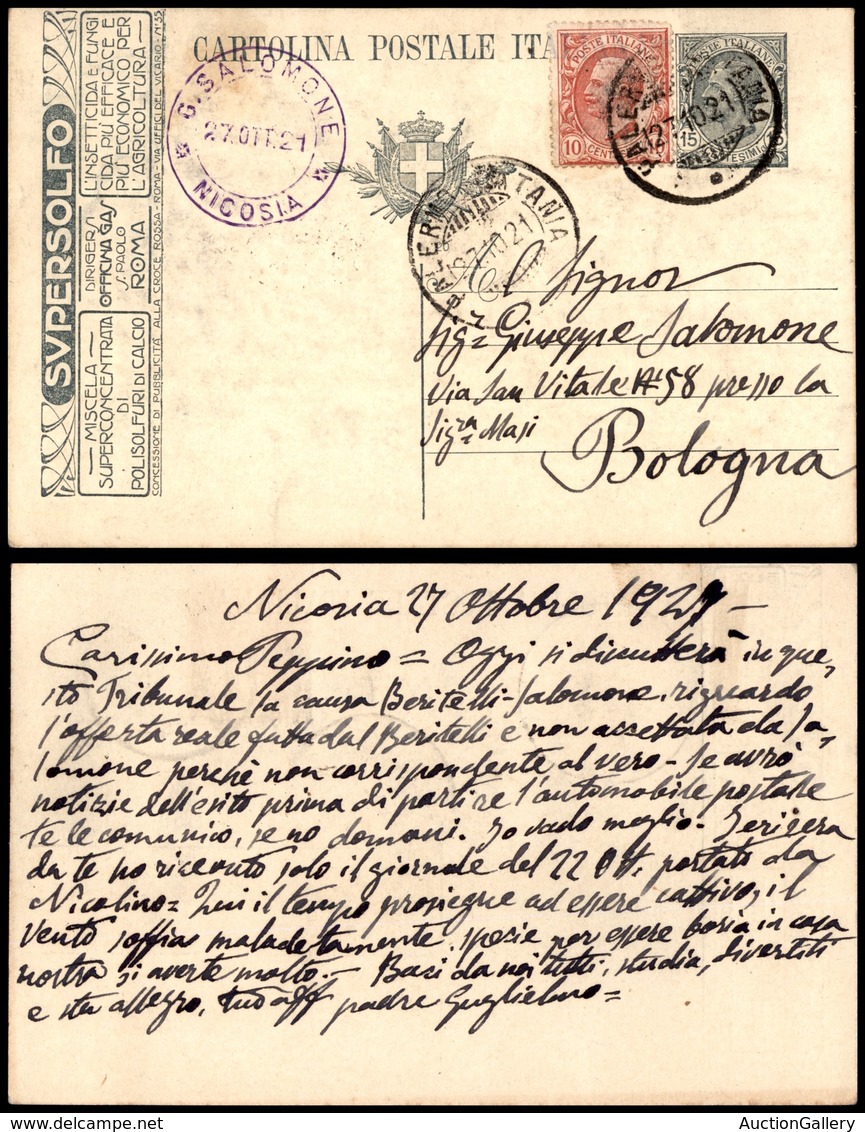 CARTOLINA POSTALE ITA
SVPERSOLFO
L'INSETTICIDA E FUNGI
CIDA PIÙ EFFICACE E
PIÙ ECONOMICO PER
L'AGRICOLTURA
DIRIGERSI
OFFICINA GAS
S. PAOLO
ROMA
MISCELA
SUPERCONCENTRATA
DI
POLISOLFURI DI CALCIO
CONCESSIONE DI PUBBLICITÀ ALLA CROCE ROSSA - ROMA - VIA UFFICI DEL VICARIO - N° 35
G. SALOMONE
27. OTT. 21
NICOSIA
POSTE ITALIANE
10 CENT
POSTE ITALIANE
15
PALERMO CATANIA
10 21
Al Signor
Sigr Giuseppe Salomone
Via San Vitale N 58 presso la
Sigra Masi
Bologna
Nicosia 27 Ottobre 1921 -
Carissimo Peppino = Oggi si discutterà in que,
sto Tribunale la causa Beritelli-Salomone, riguardo
l'offerta reale fatta dal Beritelli e non accettata da Sa,
lomone perchè non corrispondente al vero - Se avrò
notizie dell'esito prima di partire l'automobile postale
te le comunico, se no domani. Io vado meglio - Ierisera
da te ho ricevuto solo il giornale del 22 Ott. portato da
Nicolino = Qui il tempo prosiegue ad essere cattivo, il
vento soffia maladetamente, specie per essere in casa
nostra si averte molto. - Baci da noi tutti, studia, divertiti
e sta allegro, tuo aff padre Guglielmo =
AuctionGallery